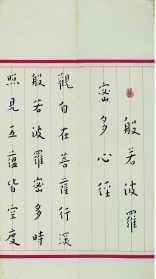 般若波羅
蜜多心經
觀自在菩薩行深
般若波羅蜜多時
照見五蘊皆空度